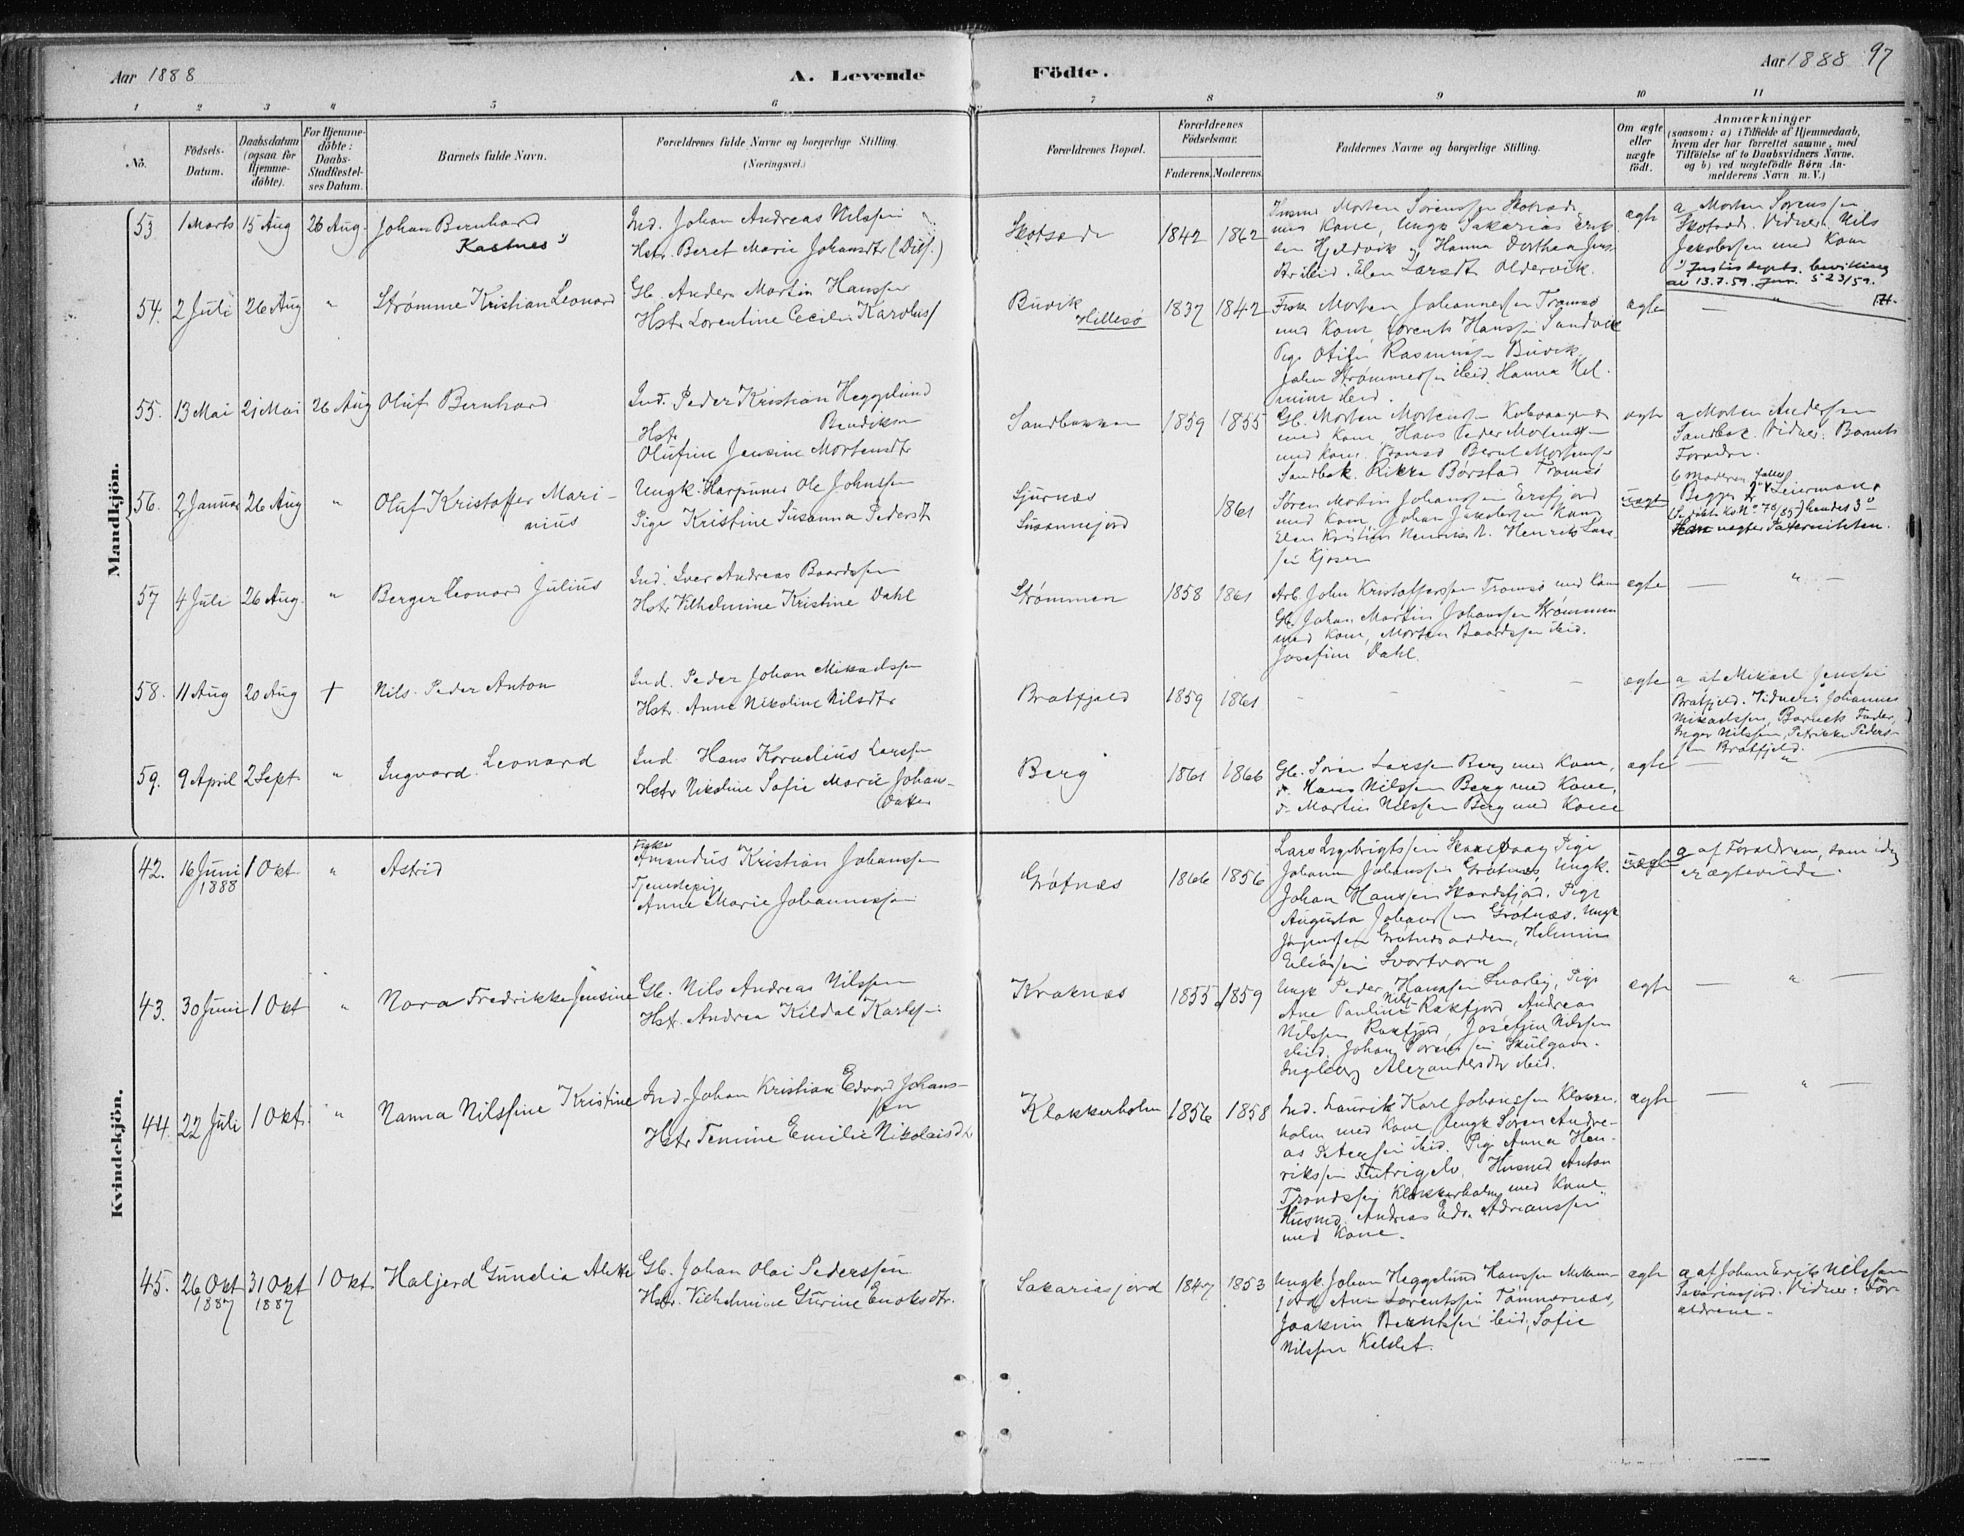 Aar 1888
A. Levende
Födte.
Aar 1888 97
1 2 3 4 5 6 7 8 9 10 11
No.
Födsels-
Datum.
Daabsdatum
(ogsaa for
Hjemme-
döbte).
For Hjemme-
döbte:
Daabs-
Stadfestel-
ses Datum.
Barnets fulde Navn.
Forældrenes fulde Navne og borgerlige Stilling.
(Næringsvei.)
Forældrenes Bopæl.
Forældrenes
Födselsaar.
Faderens. Moderens.
Faddernes Navne og borgerlige Stilling.
Om ægte
eller
uægte
födt.
Anmærkninger
(saasom: a) i Tilfælde af Hjemmedaab,
hvem der har forrettet samme, med
Tilföielse af to Daabsvidners Navne,
og b) ved uægtefödte Börn An-
melderens Navn m. V.)
Mandkjön.
53 1 Marts 15 Aug 26 Aug. Johan Bernhard
Kastnes
Ind. Johan Andreas Nilssen
Hstr. Beret Marie Johansdtr
1842 1862
Morten Sørenssen
med Kone, Ungk. Sakarias Erik-
sen Hjeldvik Hanna Dorthea
Elen Larsdtr Oldervik.
ægte
a Morten Sørenssen
Skotsæde. Vidner. Nils
Jakobssen med Kone
Justisdepts. bevilling
av 13.7.59. Jnr. 523/59.
54. 2 Juli 26 Aug " Strømme Kristian Leonard
Gb. Anders Martin Hanssen
Hstr Lorentine Cecilie
Buvik
Hillesø
1837 1842
Fisk Morten Johannessen Tromsø
med Kone Lorents Hanssen Sandvik
Pige Rasmussen Buvik
John Strømmessen ibid. Hanna
ibid.
ægte — " —
55. 13 Mai 21 Mai 26 Aug Oluf Bernhard
Ind. Peder Kristian Heggelund
Bendiksen
Hstr
Olufine Jensine Mortensdtr
Sandbakken
1859 1855
Gb. Morten Mortenssen
med Kone, Hans Peder Mortenssen
med Kone. Tromsø Bernt Mortenssen
Sandbak. Rikka Børstad Tromsø
ægte
a Morten Anderssen
Sandbak. Vidner: Barnets
Forældre.
56. 2 Januar 26 Aug " Oluf Kristoffer Mari-
nius
Ungk. Harpuner Ole Johnssen
Pige Kristine Susanna Pedersdtr
Sjurnæs
Susannejord
1861
Søren Martin Johanssen Ersfjord
med Kone, Johan Jakobssen
Elen Kristine Henrik Lars-
sen Kjosen
uægte
b Moderen
Begges 2det Leiermaal
78/85) hendes 3die
negter Paterniteten.
57 4 Juli 26 Aug. " Berger Leonard Julius
Ind. Iver Andreas Baardssen
Hstr Vilhelmine Kristine Dahl
Strømmen
1858 1861
Arb. John Kristofferssen Tromsø med Kone
Gb. Johan Martin Johanssen Strømmen
med Kone, Morten Baardssen ibid.
Josefine Dahl.
ægte — " —
58. 11 Aug 20 Aug + Nils Peder Anton
Ind. Peder Johan Mikaelssen
Hstr. Anne Nikoline Nilsdtr
Bratfjeld
1859 1861
ægte
a af Mikael Jenssen
Bratfjeld. Vidner: Johannes
Mikaelssen, Barnets Fader,
Inger Nilssen, Petrikke Peders-
sen Bratfjeld.
59. 9 April 2 Sept. " Ingvard Leonard
Ind. Hans Kornelius Larssen
Hstr Nikoline Sofie Marie Johan-
Datter
Berg
1861 1866
Gb. Søren Larssen Berg med Kone,
do Hans Nilssen Berg med Kone,
do Martin Nilssen Berg med Kone
ægte — " —
Kvindekjön.
42. 16 Juni 1 Okt. " Astrid
1888
Fisker
Amandus Kristian Johanssen
Tjenestepige
Anne Marie Johannessen
Grøtnæs
1866 1856
Lars Ingebrigtssen Skarsvaag Pige
Johanne Johanssen Grøtnæs, Ungk.
Johan Hanssen Skardsfjord. Pige
Augusta Johanssen Grøtnæs. Ungk
Jørgenssen Grøtnæsodden, Helmine
Eliassen
uægte
a af Forældrene, som
er ægteviede.
43. 30 Juni 1 Okt " Nora Fredrikke Jensine
Gb. Nils Andreas Nilssen
Hstr. Andrea Kildal Karlssen
Kraknæs
1855 1859
Ungk Peder Hanssen Snarby, Pige
Ane Pauline Nils Rakfjord, Andreas
Nilssen Rakfjord, Josefine Nilssen
ibid. Johan Sørenssen Skulgam.
Ingeborg Alexandersdtr ibid.
ægte — " —
44. 22 Juli 1 Okt. " Nanna Nilssine Kristine
Ind. Johan Kristian Edvard Johans-
sen
Hstr Temine Emilie Nikolaisdtr
Klokkerholm
1856 1858
Ind. Laurik Karl Johanssen Klokker-
holm med Kone, Ungk Søren Andre-
as Peterssen ibid. Pige Anna Hen-
rikssen Futrigelv Husmd Anton
Trondssen Klokkerholm med Kone
Husmd. Andreas Edv. Adrianssen
med Kone.
ægte — " —
45. 26 Okt 31 Okt 1 Okt. Haljerd Gunelia Alette
1887 1887
Gb. Johan Olai Pederssen
Hstr. Vilhelmine Gurine Enoksdtr.
Sakariasjord
1847 1853
Ungk. Johan Heggelund Hanssen
jord, Ane Lorentssen Tømmernæs,
Joakim Berntssen ibid, Sofie
Nilssen Kalslet.
ægte
a af Johan Erik Nilssen
Sakariasjord. Vidner: For-
ældrene.